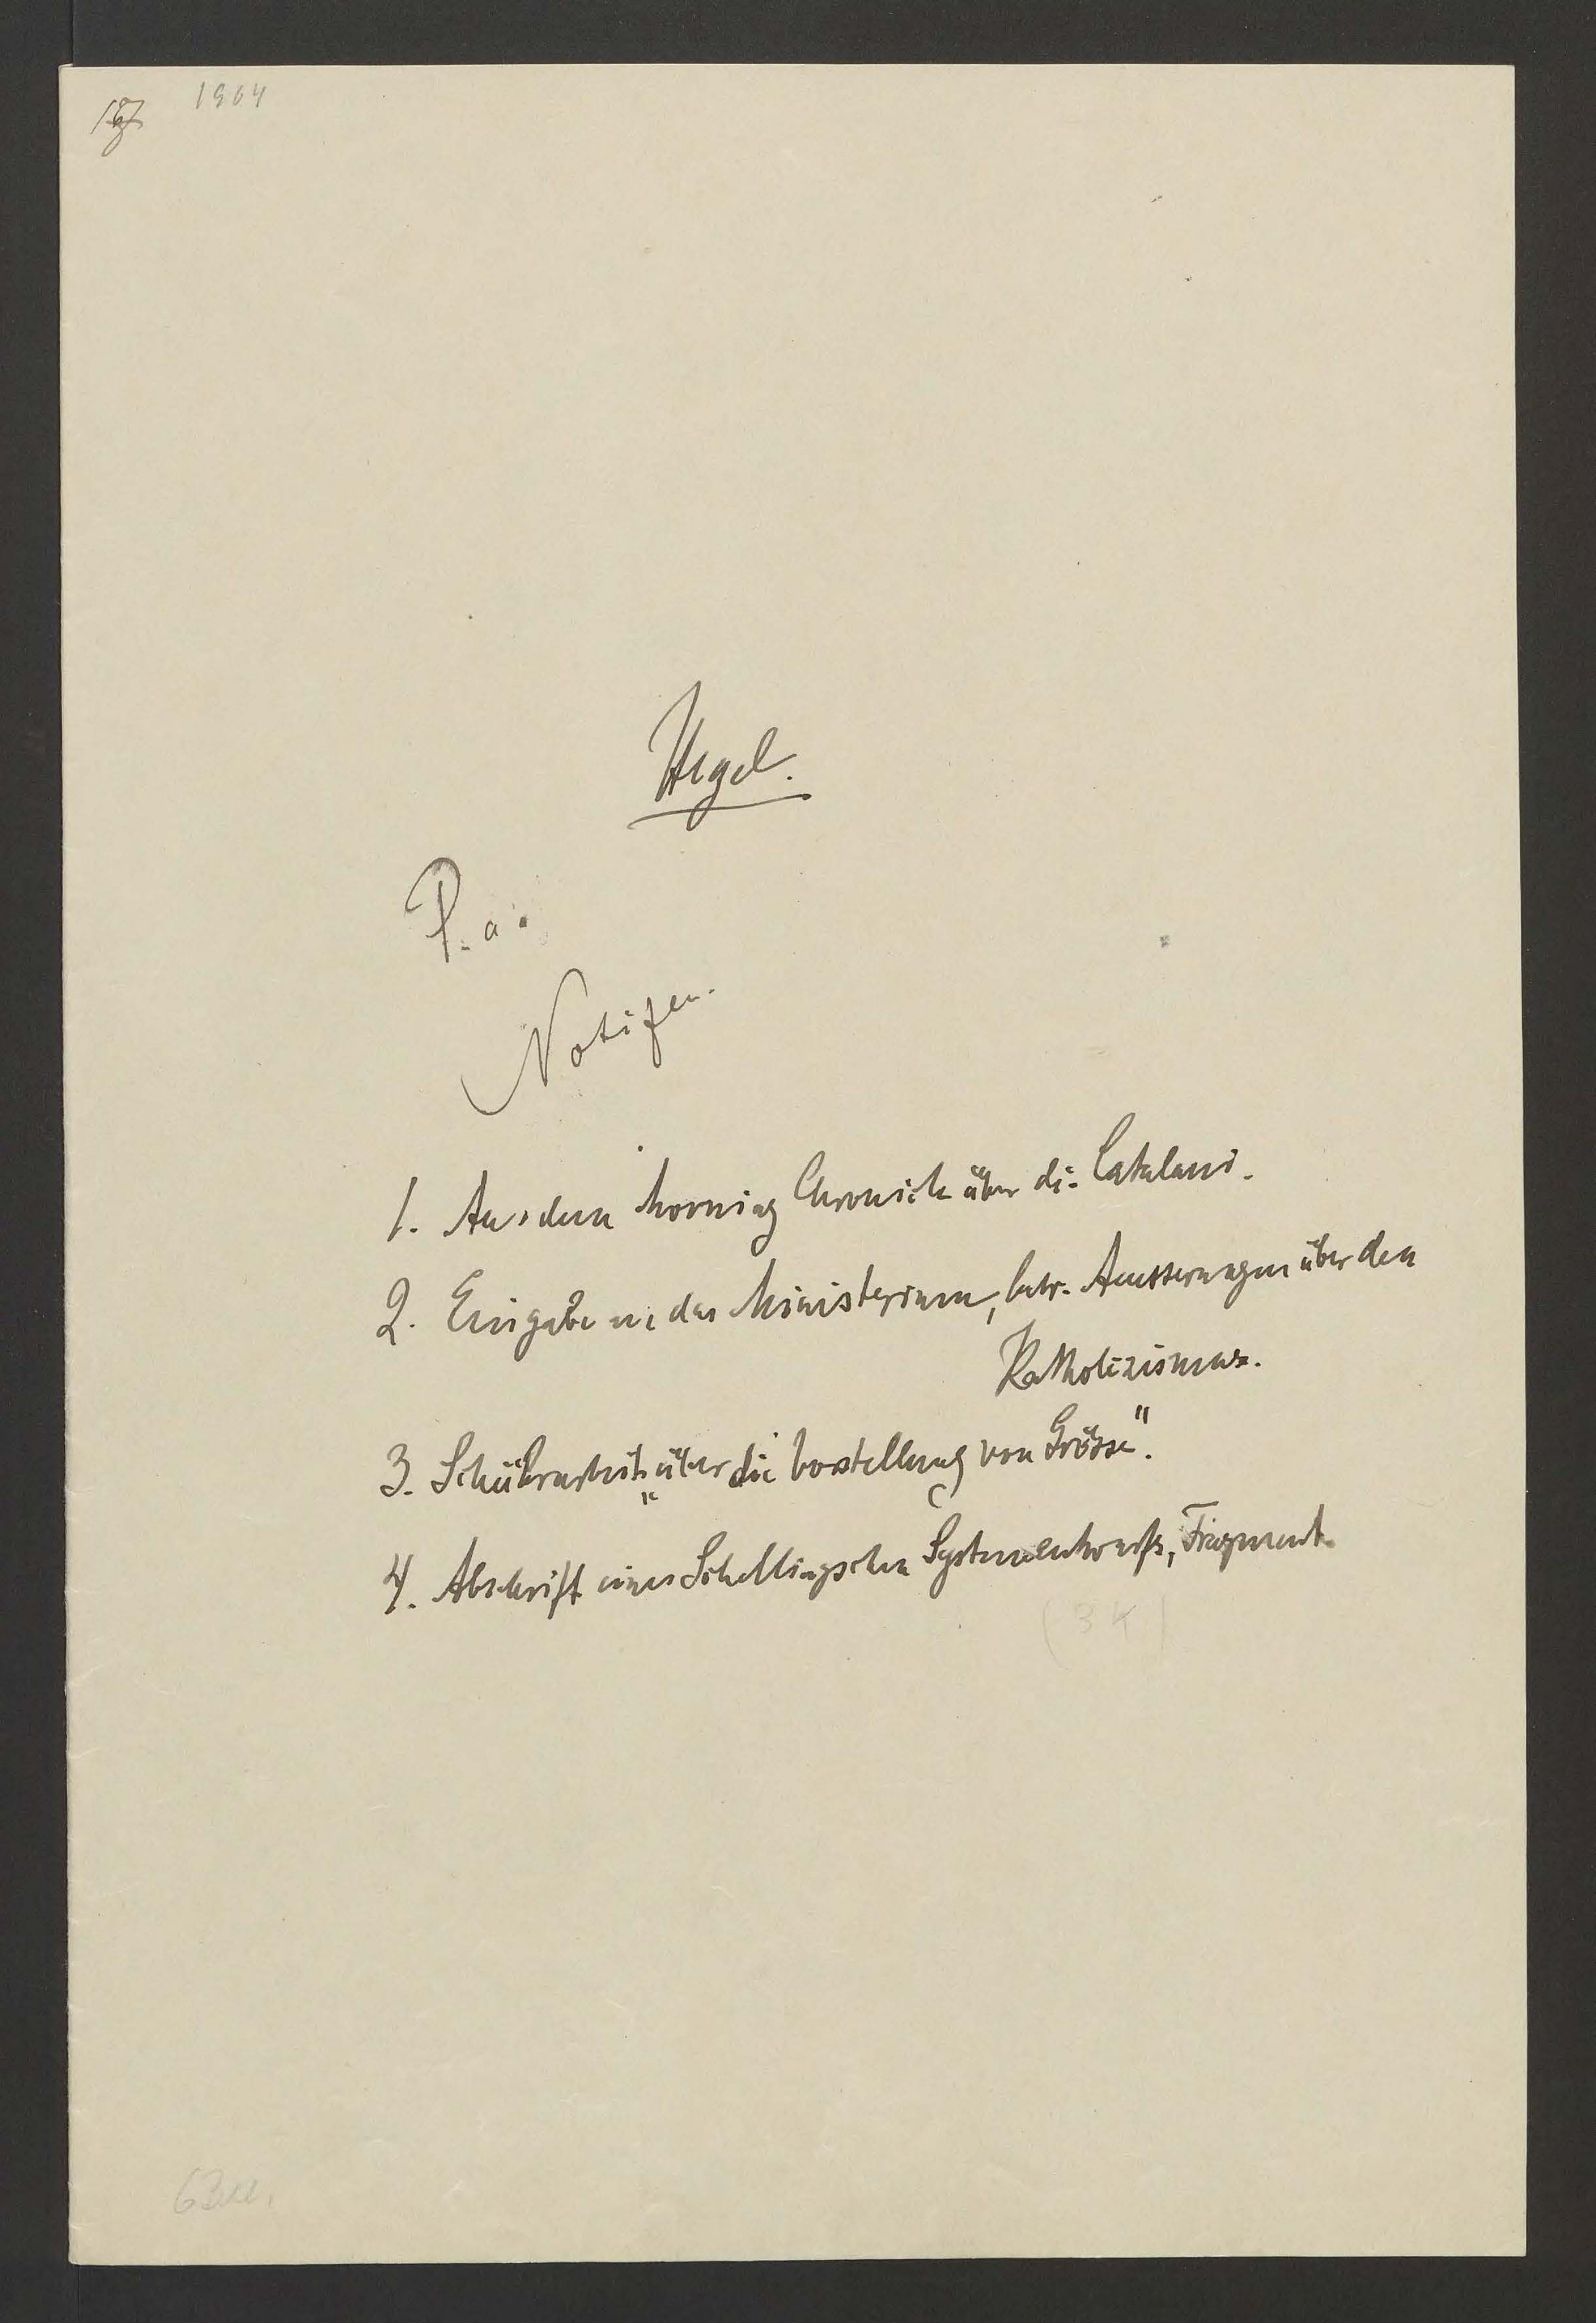 1964
Hegel.
P. a.
Notizen.
1. Aus dem Morning Chronicle über die Catalani.
2. Eingabe an das Ministerium, betr. Aeusserungen über den
Katholizismus.
3. Schülerarbeit „über die Vorstellung von Grösse".
4. Abschrift eines Schellingschen Systementwurfs, Fragment.